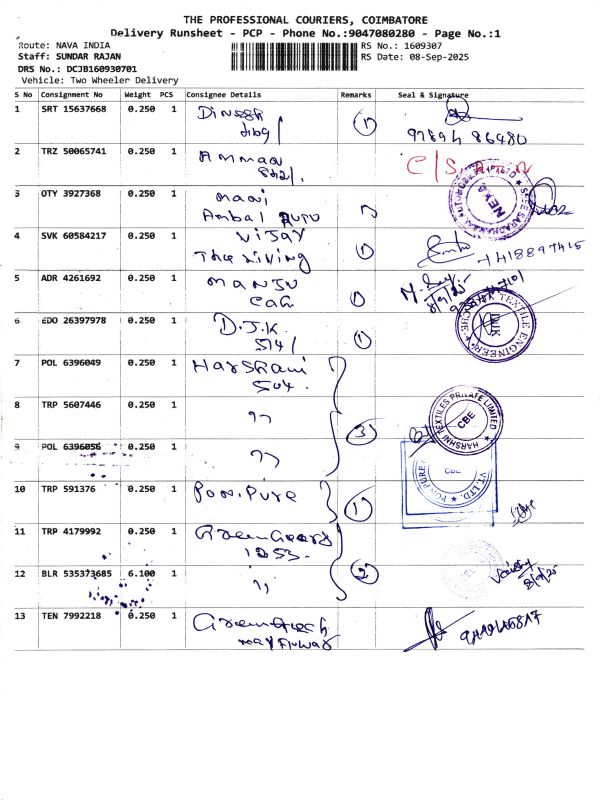 THE PROFESSIONAL COURIERS, COIMBATORE
Delivery Runsheet - PCP - Phone No.:9047080280 - Page No.:1
Route: NAVA INDIA RS No.: 1609307
Staff: SUNDAR RAJAN RS Date: 08-Sep-2025
DRS No.: DCJB160930701
Vehicle: Two Wheeler Delivery
S No Consignment No Weight PCS Consignee Details Remarks Seal & Signature
1 SRT 15637668 0.250 1 Dinesh 1
97894 86480
2 TRZ 50065741 0.250 1 Ammaa C/S
3 OTY 3927368 0.250 1 maai
Ambal Auto
4 SVK 60584217 0.250 1 Vijay 1
The Living 7418897415
5 ADR 4261692 0.250 1 Manju 1
Car
6 EDO 26397978 0.250 1 D.J.K. 1
514/
TEXTILE ENGINEER
7 POL 6396049 0.250 1 Harshani
504.
8 TRP 5607446 0.250 1 ,,
HARSHNI TEXTILES PRIVATE LIMITED
CBE
9 POL 6396056 0.250 1 ,, 3
CBE
VT. LTD.
10 TRP 591376 0.250 1 Pon. Pure 1
11 TRP 4179992 0.250 1 Green Gears
1253.
12 BLR 535373685 6.100 1 ,, 2
8/9/25
13 TEN 7992218 0.250 1 Greentech